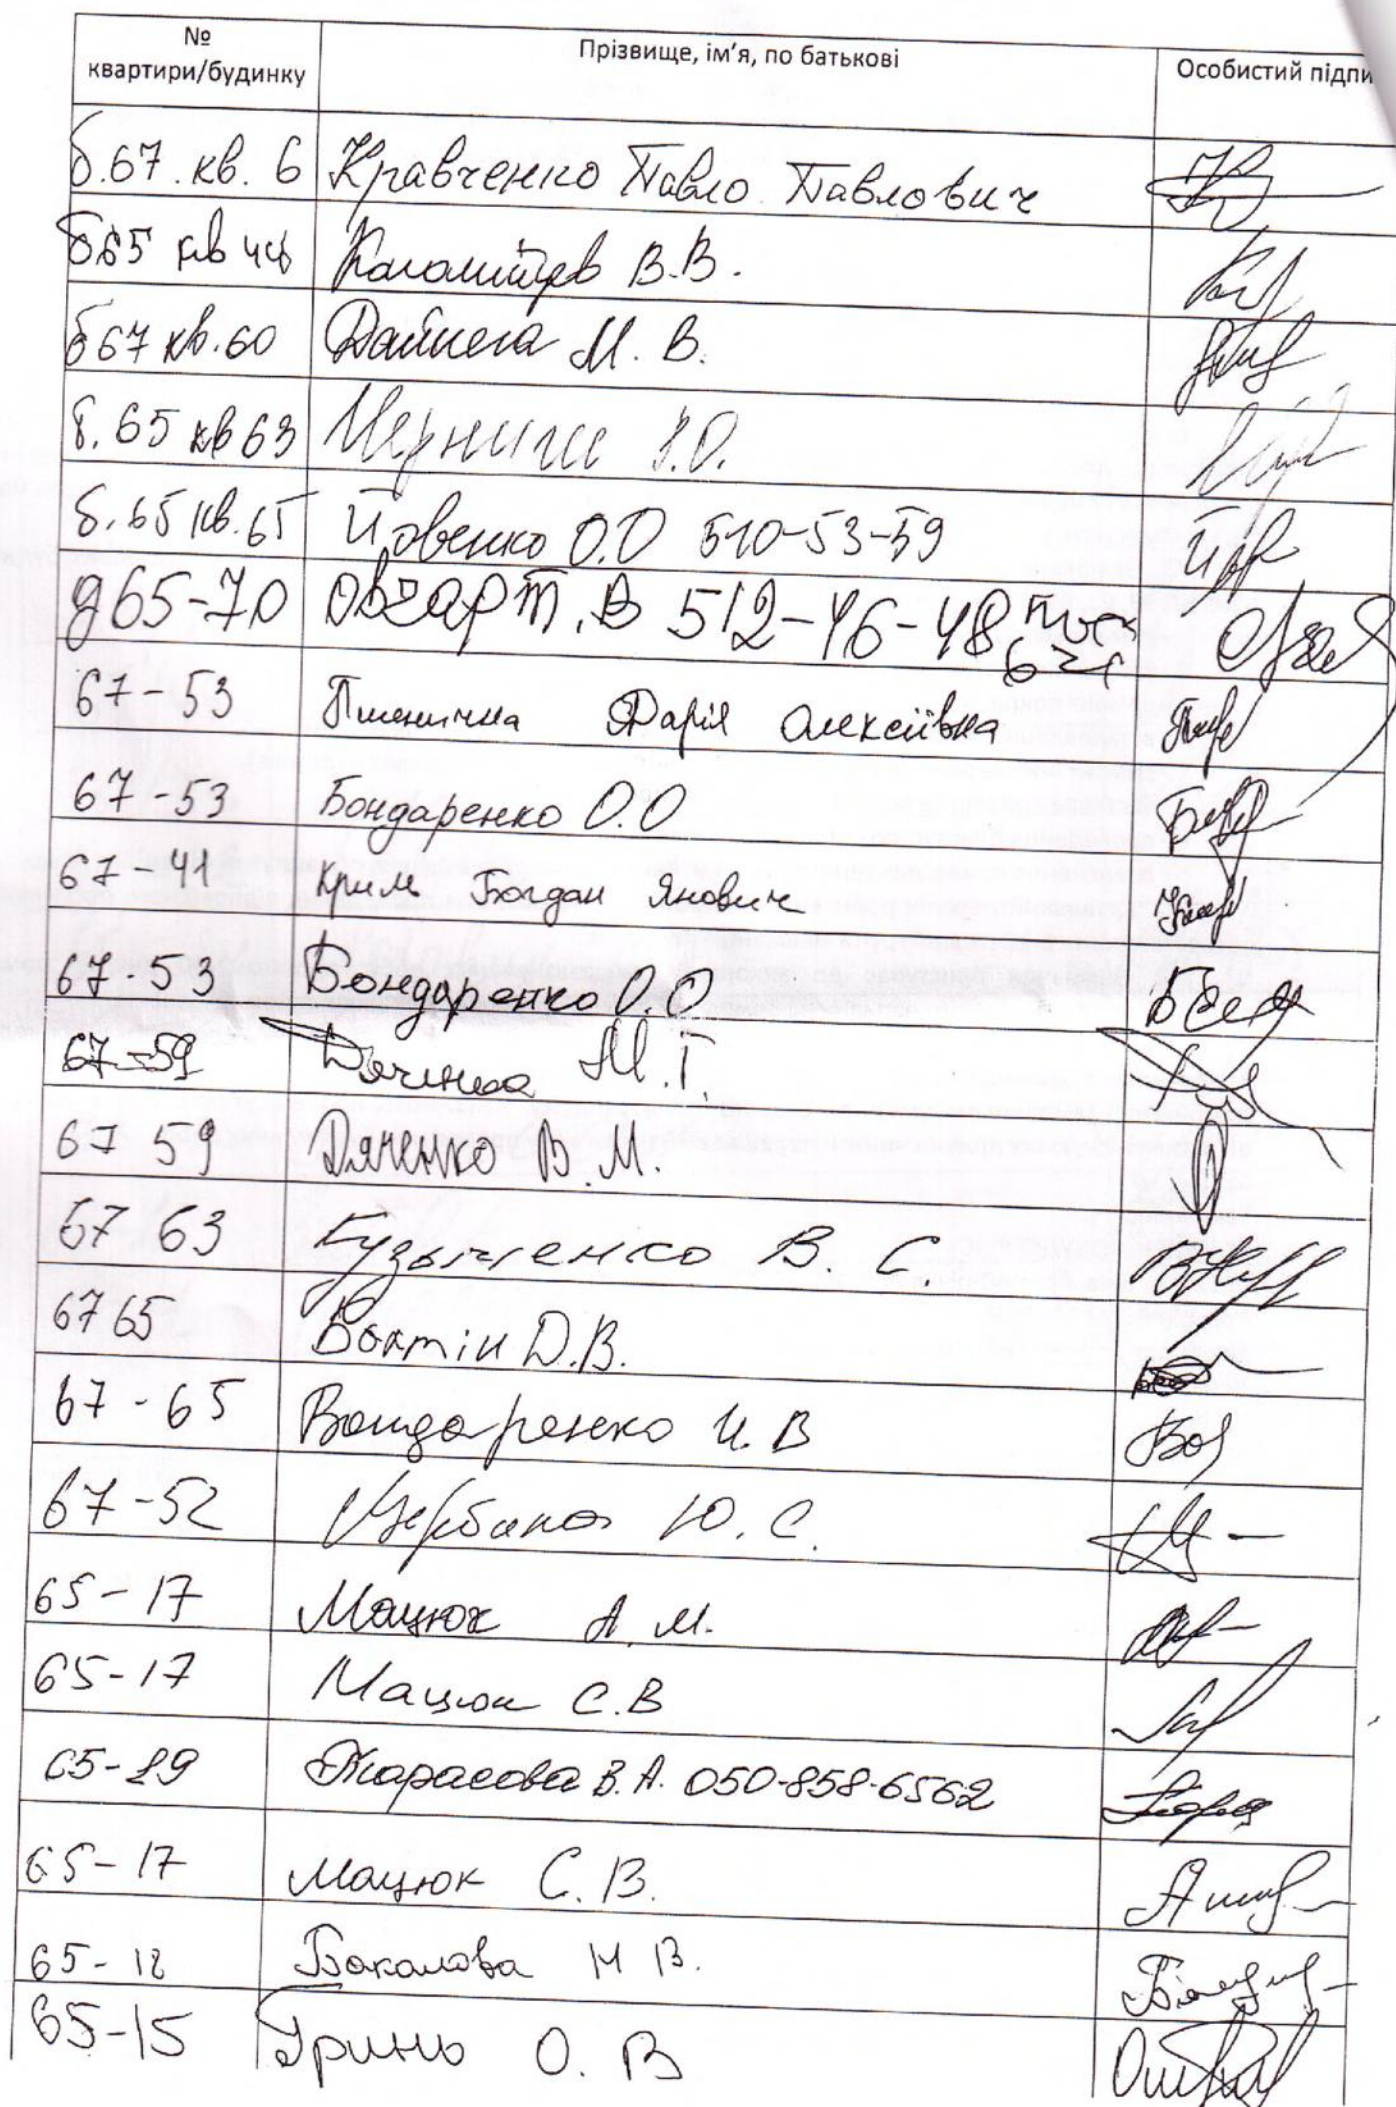 № квартири/будинку Прізвище, ім'я, по батькові Особистий підпи
б.67. кв. 6 Кравченко Павло Павлович
б65 кв 44 Коломійцев В.В.
б67 кв.60 Дайнега М. В.
б. 65 кв 63
б. 65 кв. 65 Йовенко О.О 510-53-59
д65-70 Овчар Т. В 512-46-48 після 6
67-53 Пшенична Дарія Олексіївна
67-53 Бондаренко О.О
67-41 Крим Богдан Янович
67-53 Бондаренко О.О
67-59 М.Г
67 59 Дяченко В.М.
67 63 Кузьменко В С.
67 65 Боктін Д.В.
67-65 Бондаренко И.В
67-52 Щербина Ю. С.
65-17 Мацюк А.М.
65-17 Мацюк С.В
65-29 Тарасова В.А. 050-858-6562
65-17 Мацюк С.В.
65-12 Бокалова Н В.
65-15 Гринь О. В